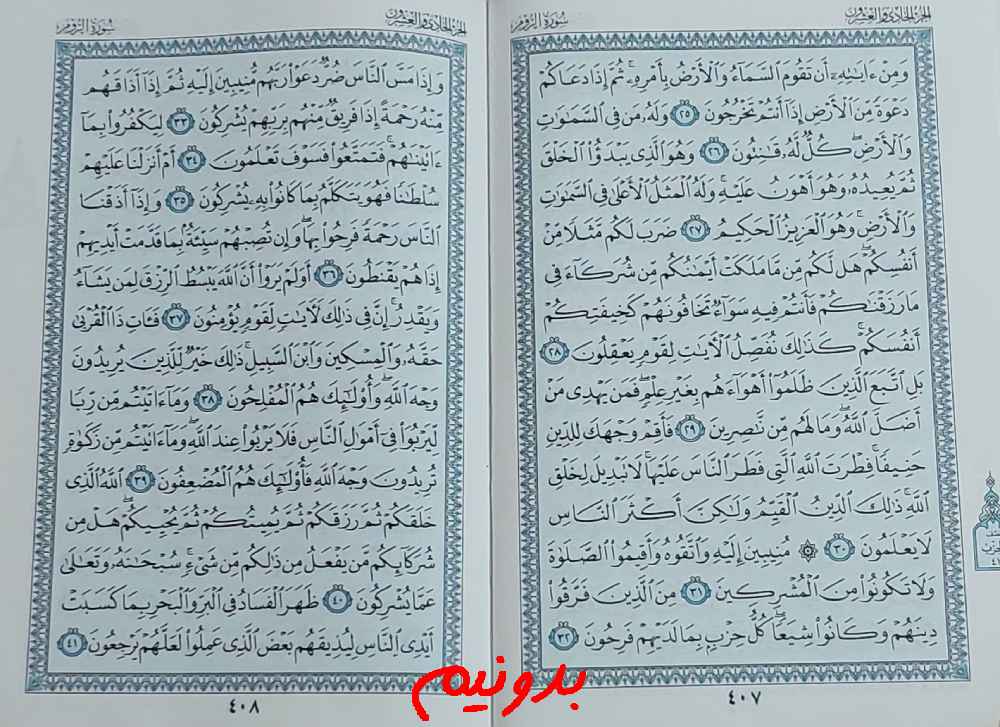 الجزء الحادي والعشرون
سورة الروم
وَمِنْ ءَايَٰتِهِۦٓ أَن تَقُومَ ٱلسَّمَآءُ وَٱلْأَرْضُ بِأَمْرِهِۦ ۚ ثُمَّ إِذَا دَعَاكُمْ
دَعْوَةً مِّنَ ٱلْأَرْضِ إِذَآ أَنتُمْ تَخْرُجُونَ ٢٥ وَلَهُۥ مَن فِى ٱلسَّمَٰوَٰتِ
وَٱلْأَرْضِ ۖ كُلٌّ لَّهُۥ قَٰنِتُونَ ٢٦ وَهُوَ ٱلَّذِى يَبْدَؤُا۟ ٱلْخَلْقَ
ثُمَّ يُعِيدُهُۥ وَهُوَ أَهْوَنُ عَلَيْهِ ۚ وَلَهُ ٱلْمَثَلُ ٱلْأَعْلَىٰ فِى ٱلسَّمَٰوَٰتِ
وَٱلْأَرْضِ ۚ وَهُوَ ٱلْعَزِيزُ ٱلْحَكِيمُ ٢٧ ضَرَبَ لَكُم مَّثَلًا مِّنْ
أَنفُسِكُمْ ۖ هَل لَّكُم مِّن مَّا مَلَكَتْ أَيْمَٰنُكُم مِّن شُرَكَآءَ فِى
مَا رَزَقْنَٰكُمْ فَأَنتُمْ فِيهِ سَوَآءٌ تَخَافُونَهُمْ كَخِيفَتِكُمْ
أَنفُسَكُمْ ۚ كَذَٰلِكَ نُفَصِّلُ ٱلْءَايَٰتِ لِقَوْمٍ يَعْقِلُونَ ٢٨
بَلِ ٱتَّبَعَ ٱلَّذِينَ ظَلَمُوٓا۟ أَهْوَآءَهُم بِغَيْرِ عِلْمٍ ۖ فَمَن يَهْدِى مَنْ
أَضَلَّ ٱللَّهُ ۖ وَمَا لَهُم مِّن نَّٰصِرِينَ ٢٩ فَأَقِمْ وَجْهَكَ لِلدِّينِ
حَنِيفًا ۚ فِطْرَتَ ٱللَّهِ ٱلَّتِى فَطَرَ ٱلنَّاسَ عَلَيْهَا ۚ لَا تَبْدِيلَ لِخَلْقِ
ٱللَّهِ ۚ ذَٰلِكَ ٱلدِّينُ ٱلْقَيِّمُ وَلَٰكِنَّ أَكْثَرَ ٱلنَّاسِ
لَا يَعْلَمُونَ ٣٠ ۞ مُنِيبِينَ إِلَيْهِ وَٱتَّقُوهُ وَأَقِيمُوا۟ ٱلصَّلَوٰةَ
وَلَا تَكُونُوا۟ مِنَ ٱلْمُشْرِكِينَ ٣١ مِنَ ٱلَّذِينَ فَرَّقُوا۟
دِينَهُمْ وَكَانُوا۟ شِيَعًا ۖ كُلُّ حِزْبٍۭ بِمَا لَدَيْهِمْ فَرِحُونَ ٣٢
٤٠٧
الجزء الحادي والعشرون
سورة الروم
وَإِذَا مَسَّ ٱلنَّاسَ ضُرٌّ دَعَوْا۟ رَبَّهُم مُّنِيبِينَ إِلَيْهِ ثُمَّ إِذَآ أَذَاقَهُم
مِّنْهُ رَحْمَةً إِذَا فَرِيقٌ مِّنْهُم بِرَبِّهِمْ يُشْرِكُونَ ٣٣ لِيَكْفُرُوا۟ بِمَآ
ءَاتَيْنَٰهُمْ ۚ فَتَمَتَّعُوا۟ فَسَوْفَ تَعْلَمُونَ ٣٤ أَمْ أَنزَلْنَا عَلَيْهِمْ
سُلْطَٰنًا فَهُوَ يَتَكَلَّمُ بِمَا كَانُوا۟ بِهِۦ يُشْرِكُونَ ٣٥ وَإِذَآ أَذَقْنَا
ٱلنَّاسَ رَحْمَةً فَرِحُوا۟ بِهَا ۖ وَإِن تُصِبْهُمْ سَيِّئَةٌۢ بِمَا قَدَّمَتْ أَيْدِيهِمْ
إِذَا هُمْ يَقْنَطُونَ ٣٦ أَوَلَمْ يَرَوْا۟ أَنَّ ٱللَّهَ يَبْسُطُ ٱلرِّزْقَ لِمَن يَشَآءُ
وَيَقْدِرُ ۚ إِنَّ فِى ذَٰلِكَ لَءَايَٰتٍ لِّقَوْمٍ يُؤْمِنُونَ ٣٧ فَـَٔاتِ ذَا ٱلْقُرْبَىٰ
حَقَّهُۥ وَٱلْمِسْكِينَ وَٱبْنَ ٱلسَّبِيلِ ۚ ذَٰلِكَ خَيْرٌ لِّلَّذِينَ يُرِيدُونَ
وَجْهَ ٱللَّهِ ۖ وَأُو۟لَٰٓئِكَ هُمُ ٱلْمُفْلِحُونَ ٣٨ وَمَآ ءَاتَيْتُم مِّن رِّبًا
لِّيَرْبُوَا۟ فِىٓ أَمْوَٰلِ ٱلنَّاسِ فَلَا يَرْبُوا۟ عِندَ ٱللَّهِ ۖ وَمَآ ءَاتَيْتُم مِّن زَكَوٰةٍ
تُرِيدُونَ وَجْهَ ٱللَّهِ فَأُو۟لَٰٓئِكَ هُمُ ٱلْمُضْعِفُونَ ٣٩ ٱللَّهُ ٱلَّذِى
خَلَقَكُمْ ثُمَّ رَزَقَكُمْ ثُمَّ يُمِيتُكُمْ ثُمَّ يُحْيِيكُمْ ۖ هَلْ مِن
شُرَكَآئِكُم مَّن يَفْعَلُ مِن ذَٰلِكُم مِّن شَىْءٍ ۚ سُبْحَٰنَهُۥ وَتَعَٰلَىٰ
عَمَّا يُشْرِكُونَ ٤٠ ظَهَرَ ٱلْفَسَادُ فِى ٱلْبَرِّ وَٱلْبَحْرِ بِمَا كَسَبَتْ
أَيْدِى ٱلنَّاسِ لِيُذِيقَهُم بَعْضَ ٱلَّذِى عَمِلُوا۟ لَعَلَّهُمْ يَرْجِعُونَ ٤١
٤٠٨
بدونيم